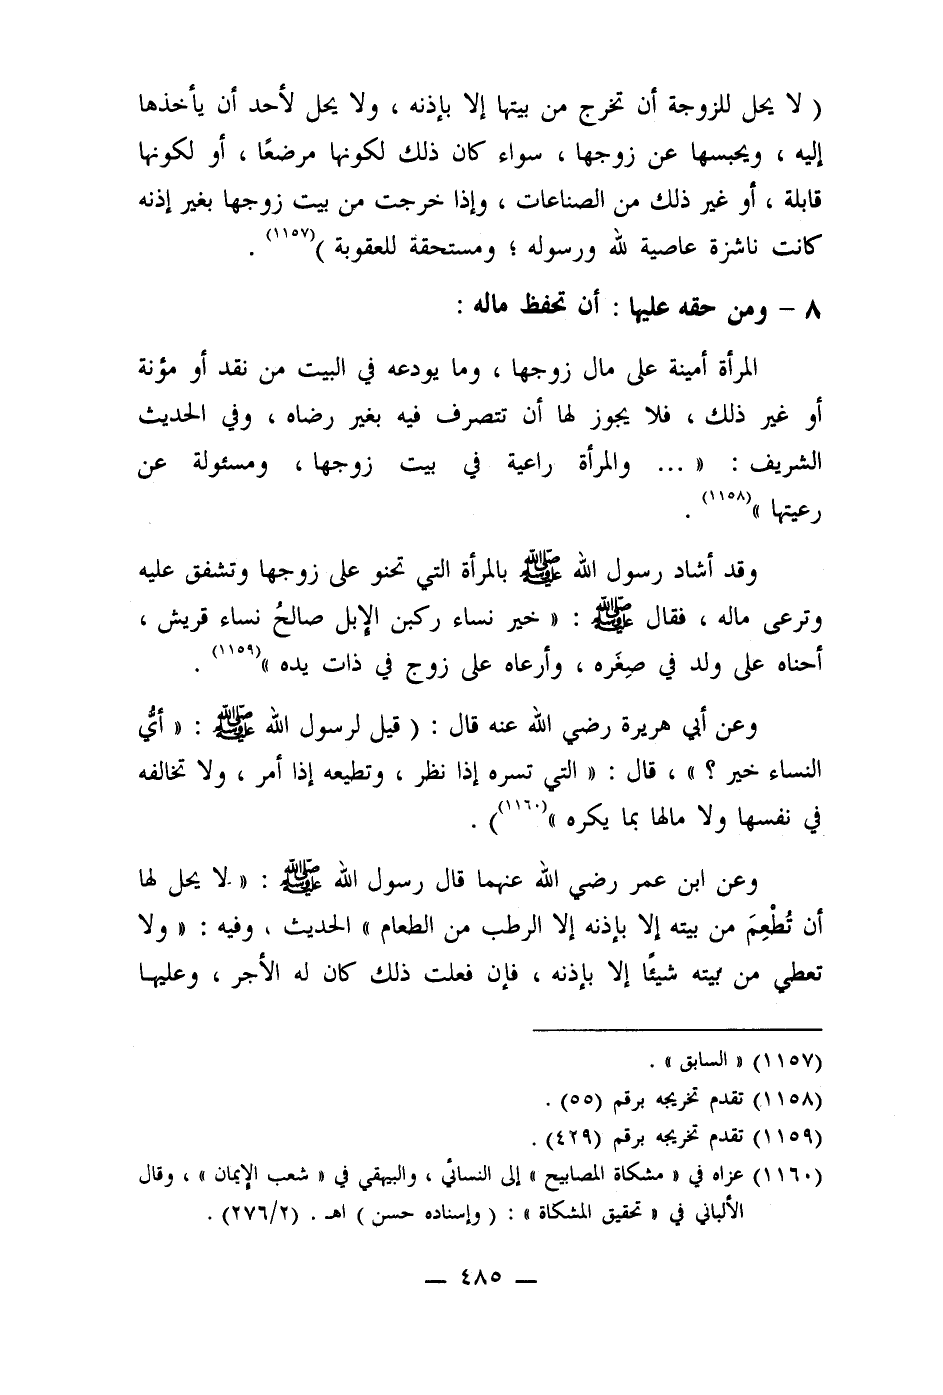 ( لا يحل للزوجة أن تخرج من بيتها إلا بإذنه ، ولا يحل لأحد أن يأخذها
إليه ، ويحبسها عن زوجها ، سواء كان ذلك لكونها مرضعًا ، أو لكونها
قابلة ، أو غير ذلك من الصناعات ، وإذا خرجت من بيت زوجها بغير إذنه
كانت ناشزة عاصية لله ورسوله ؛ ومستحقة للعقوبة )(١١٥٧) .
٨ – ومن حقه عليها : أن تحفظ ماله :
المرأة أمينة على مال زوجها ، وما يودعه في البيت من نقد أو مؤنة
أو غير ذلك ، فلا يجوز لها أن تتصرف فيه بغير رضاه ، وفي الحديث
الشريف : « ... والمرأة راعية في بيت زوجها ، ومسئولة عن
رعيتها »(١١٥٨) .
وقد أشاد رسول الله ﷺ بالمرأة التي تحنو على زوجها وتشفق عليه
وترعى ماله ، فقال ﷺ : « خير نساء ركبن الإبل صالحُ نساء قريش ،
أحناه على ولد في صِغَره ، وأرعاه على زوج في ذات يده »(١١٥٩) .
وعن أبي هريرة رضي الله عنه قال : ( قيل لرسول الله ﷺ : « أيُّ
النساء خير ؟ » ، قال : « التي تسره إذا نظر ، وتطيعه إذا أمر ، ولا تخالفه
في نفسها ولا مالها بما يكره »(١١٦٠)) .
وعن ابن عمر رضي الله عنهما قال رسول الله ﷺ : « لا يحل لها
أن تُطْعِمَ من بيته إلا بإذنه إلا الرطب من الطعام » الحديث ، وفيه : « ولا
تعطي من بيته شيئًا إلا بإذنه ، فإن فعلت ذلك كان له الأجر ، وعليها
(١١٥٧) « السابق » .
(١١٥٨) تقدم تخريجه برقم (٥٥) .
(١١٥٩) تقدم تخريجه برقم (٤٢٩) .
(١١٦٠) عزاه في « مشكاة المصابيح » إلى النسائي ، والبيهقي في « شعب الإيمان » ، وقال
الألباني في « تحقيق المشكاة » : ( وإسناده حسن ) اهـ . (٢٧٦/٢) .
— ٤٨٥ —